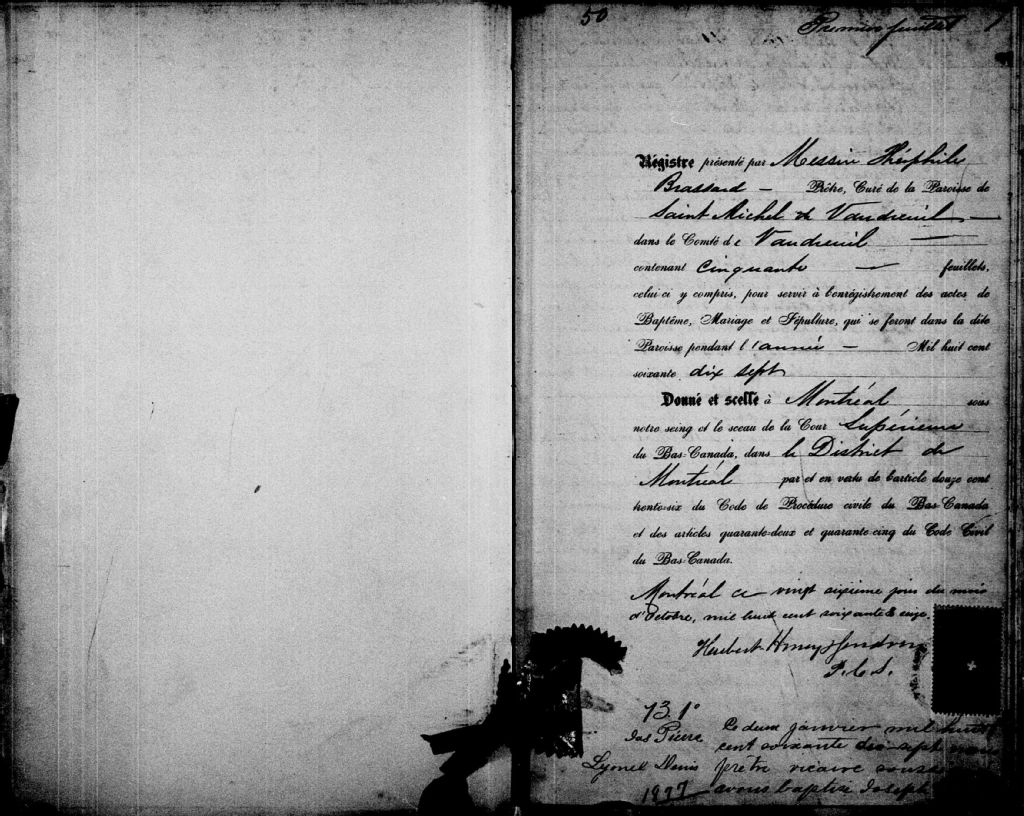 50
Premier feuillet 1
Régistre présenté par Messire Théophile
Brassard — Prêtre, Curé de la Paroisse de
Saint Michel de Vaudreuil —
dans le Comté de Vaudreuil —
contenant Cinquante — feuillets,
celui-ci y compris, pour servir à l'enrégistrement des actes de
Baptême, Mariage et Sépulture, qui se feront dans la dite
Paroisse pendant l'année — Mil huit cent
soixante dix sept
Donné et scellé à Montréal sous
notre seing et le sceau de la Cour Supérieure
du Bas-Canada, dans le District de
Montréal par et en vertu de l'article douze cent
trente-six du Code de Procédure civile du Bas-Canada
et des articles quarante-deux et quarante-cinq du Code Civil
du Bas-Canada.
Montréal ce vingt sixième jour du mois
d'Octobre, mil huit cent soixante & seize.
Hubert Honey
P.C.S.
B. 1°
Jos Pierre
Lyonel Denis
1877
Le deux janvier mil huit
cent soixante dix-sept nous
prêtre vicaire
avons baptisé Joseph